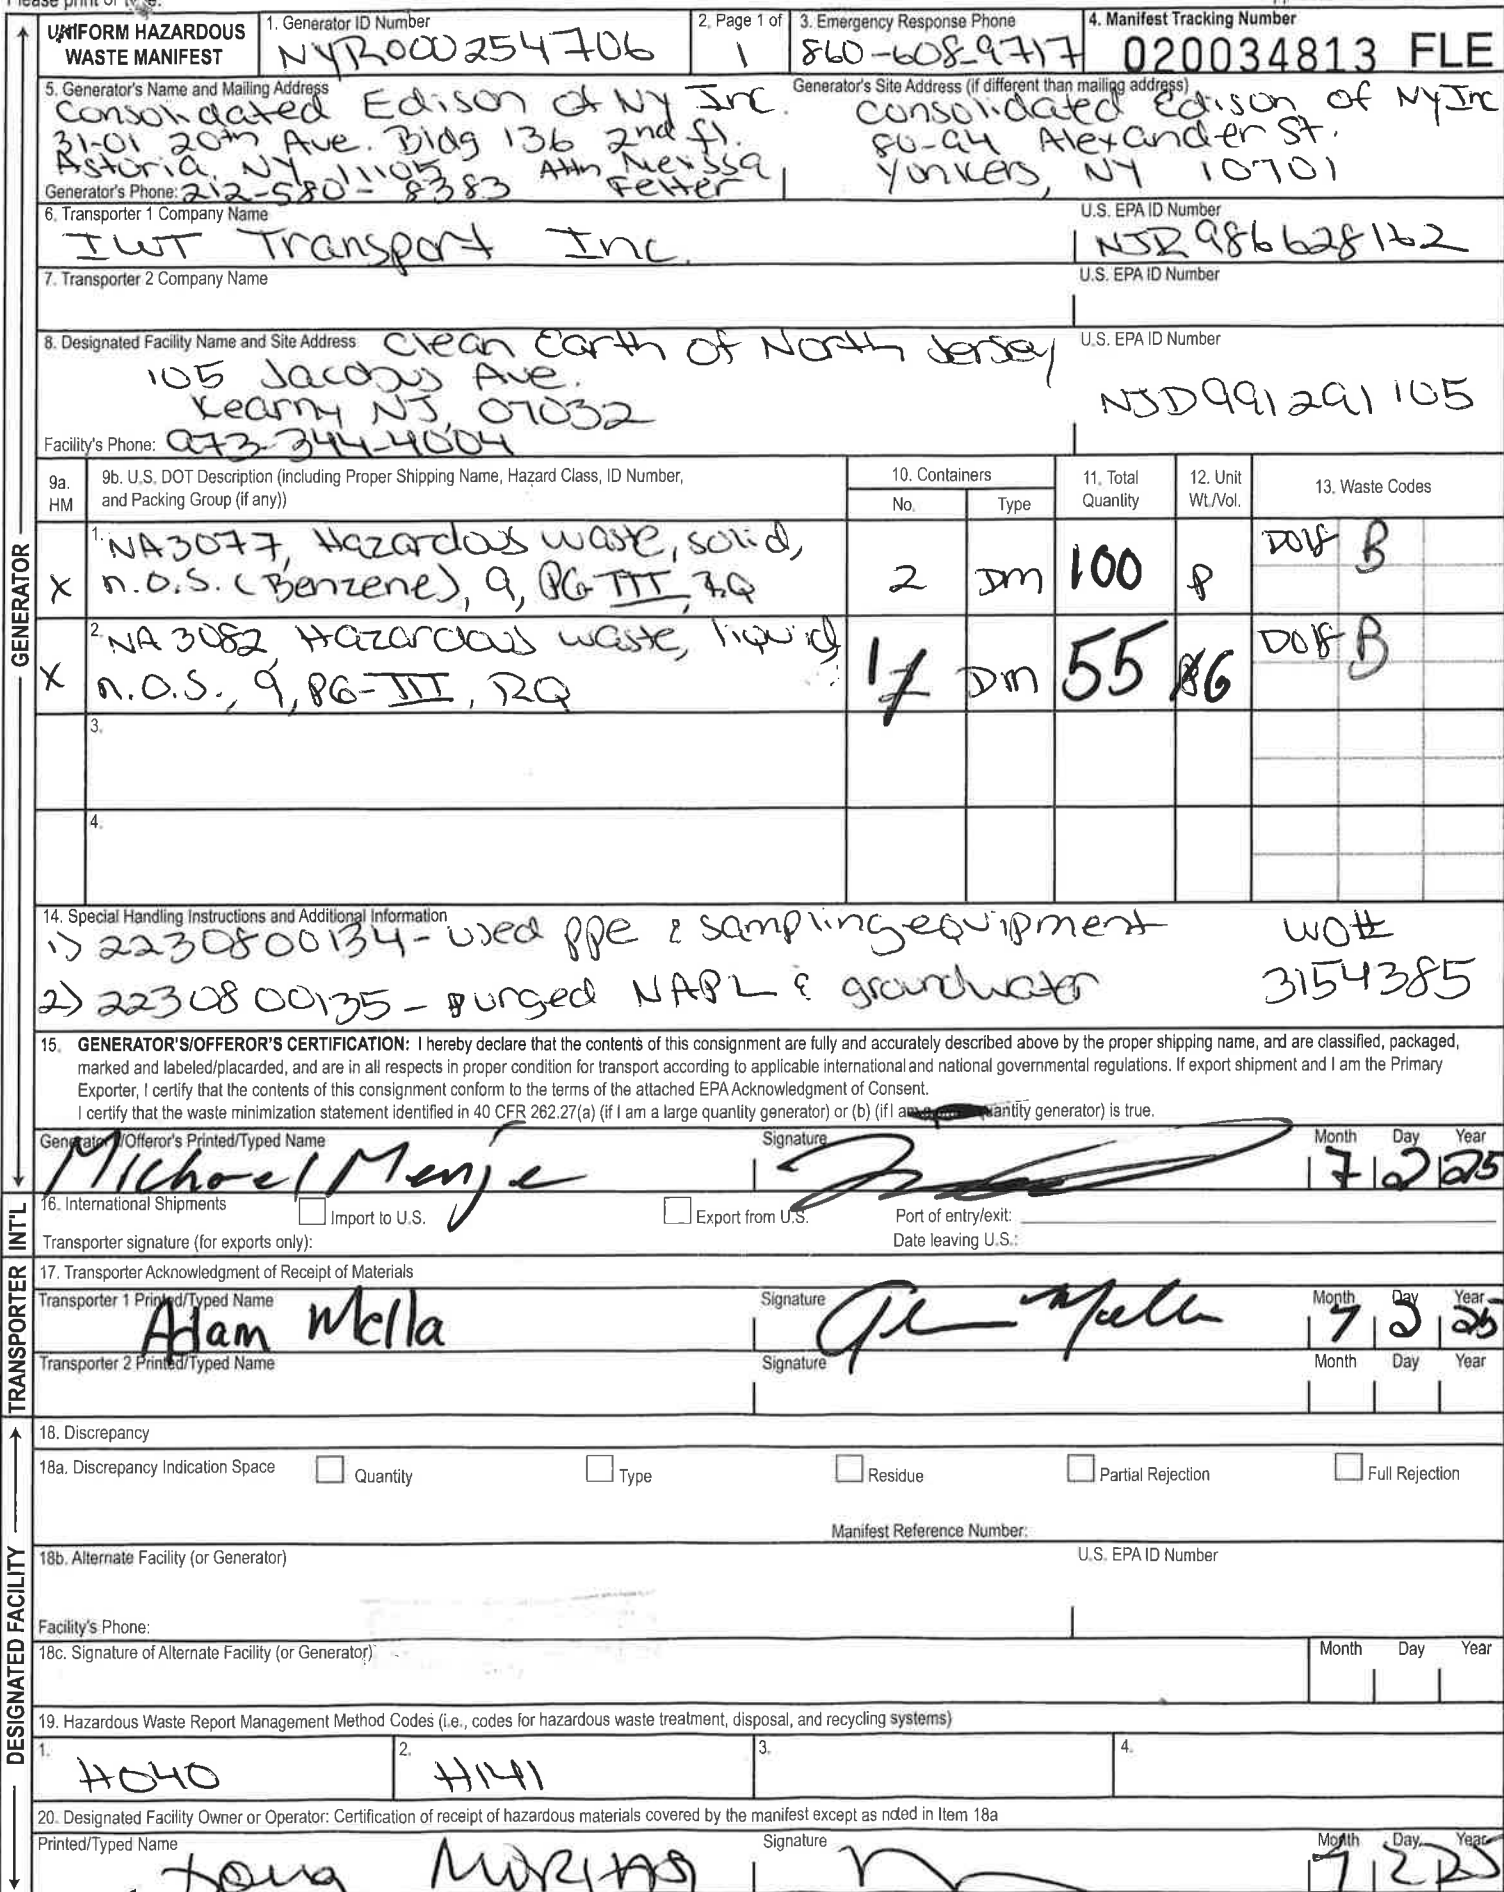 Please print or type.
UNIFORM HAZARDOUS WASTE MANIFEST
1. Generator ID Number
NYR000254706
2. Page 1 of
1
3. Emergency Response Phone
860-608-9717
4. Manifest Tracking Number
020034813 FLE
5. Generator's Name and Mailing Address
Consolidated Edison of NY Inc.
31-01 20th Ave. Bldg 136 2nd fl.
Astoria, NY 11105 Attn Merissa Fetter
Generator's Phone: 212-580-8383
Generator's Site Address (if different than mailing address)
Consolidated Edison of NY Inc
80-94 Alexander St.
Yonkers, NY 10701
6. Transporter 1 Company Name
IWT Transport Inc.
U.S. EPA ID Number
NJR986628162
7. Transporter 2 Company Name
U.S. EPA ID Number
8. Designated Facility Name and Site Address
Clean Earth of North Jersey
105 Jacobus Ave.
Kearny NJ, 07032
Facility's Phone: 973-344-4004
U.S. EPA ID Number
NJD991291105
9a. HM
9b. U.S. DOT Description (including Proper Shipping Name, Hazard Class, ID Number,
and Packing Group (if any))
10. Containers
No.
Type
11. Total Quantity
12. Unit Wt./Vol.
13. Waste Codes
X
1. NA3077, Hazardous waste, solid,
n.o.s. (Benzene), 9, PG-III, RQ
2
DM
100
P
D018 B
X
2. NA3082, Hazardous waste, liquid,
n.o.s., 9, PG-III, RQ
1
DM
55
G
D018 B
3.
4.
14. Special Handling Instructions and Additional Information
1) 2230800134 - used ppe & sampling equipment WO#
2) 2230800135 - purged NAPL & groundwater 3154385
15. GENERATOR'S/OFFEROR'S CERTIFICATION: I hereby declare that the contents of this consignment are fully and accurately described above by the proper shipping name, and are classified, packaged,
marked and labeled/placarded, and are in all respects in proper condition for transport according to applicable international and national governmental regulations. If export shipment and I am the Primary
Exporter, I certify that the contents of this consignment conform to the terms of the attached EPA Acknowledgment of Consent.
I certify that the waste minimization statement identified in 40 CFR 262.27(a) (if I am a large quantity generator) or (b) (if I am quantity generator) is true.
Generator's/Offeror's Printed/Typed Name
Michael Menje
Signature
Month Day Year
7 2 25
16. International Shipments
Import to U.S.
Export from U.S.
Port of entry/exit:
Transporter signature (for exports only):
Date leaving U.S.:
17. Transporter Acknowledgment of Receipt of Materials
Transporter 1 Printed/Typed Name
Adam Mella
Signature
Month Day Year
7 2 25
Transporter 2 Printed/Typed Name
Signature
Month Day Year
18. Discrepancy
18a. Discrepancy Indication Space
Quantity
Type
Residue
Partial Rejection
Full Rejection
Manifest Reference Number:
18b. Alternate Facility (or Generator)
U.S. EPA ID Number
Facility's Phone:
18c. Signature of Alternate Facility (or Generator)
Month Day Year
19. Hazardous Waste Report Management Method Codes (i.e., codes for hazardous waste treatment, disposal, and recycling systems)
1. H040
2. H141
3.
4.
20. Designated Facility Owner or Operator: Certification of receipt of hazardous materials covered by the manifest except as noted in Item 18a
Printed/Typed Name
Signature
Month Day Year
7 2 25
GENERATOR
INT'L
TRANSPORTER
DESIGNATED FACILITY